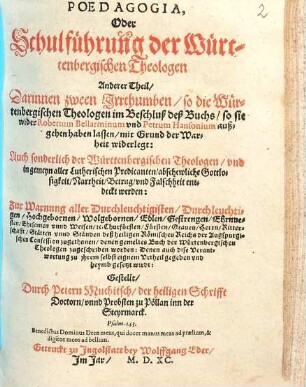 2
POEDAGOGIA,
Oder
Schulführung der Würt-
tenbergischen Theologen
Anderer Theil/
Darinnen zween Irrthumben / so die Wür-
tenbergischen Theologen im Beschluß deß Buchs / so sie
wider Robertum Bellarminum vnd Petrum Hansonium auß-
gehen haben lassen / mit Grund der War-
heit widerlegt:
Auch sonderlich der Württenbergischen Theologen / vnd
ingemeyn aller Lutherischen Predicanten abschewliche Gottlo-
sigkeit / Narrheit / Betrug / vnd Falschheit ent-
deckt werden:
Zur Warnung aller Durchleuchtigisten / Durchleuchti-
gen / Hochgebornen / Wolgebornen / Edlen / Gestrengen /
der Augspurgi-
schen Confession zugethanen / denen gemeltes Buch der Würtenbergischen
Theologen zugeschriben worden: Denen auch dise Verant-
wortung zu ihrem selbst eignem Vrtheil gegeben vnd
heymb gesetzt wurdt:
Gestellt /
Durch Petern Muchitsch / der heiligen Schrifft
Doctorn / vnnd Probsten zu Pöllan inn der
Steyrmarck.
Psalm. 143.
Benedictus Dominus Deus meus, qui docet manus meas ad prælium, &
digitos meos ad bellum.
Getruckt zu Ingolstatt bey Wolffgang Eder /
Im Jar / M. D. XC.